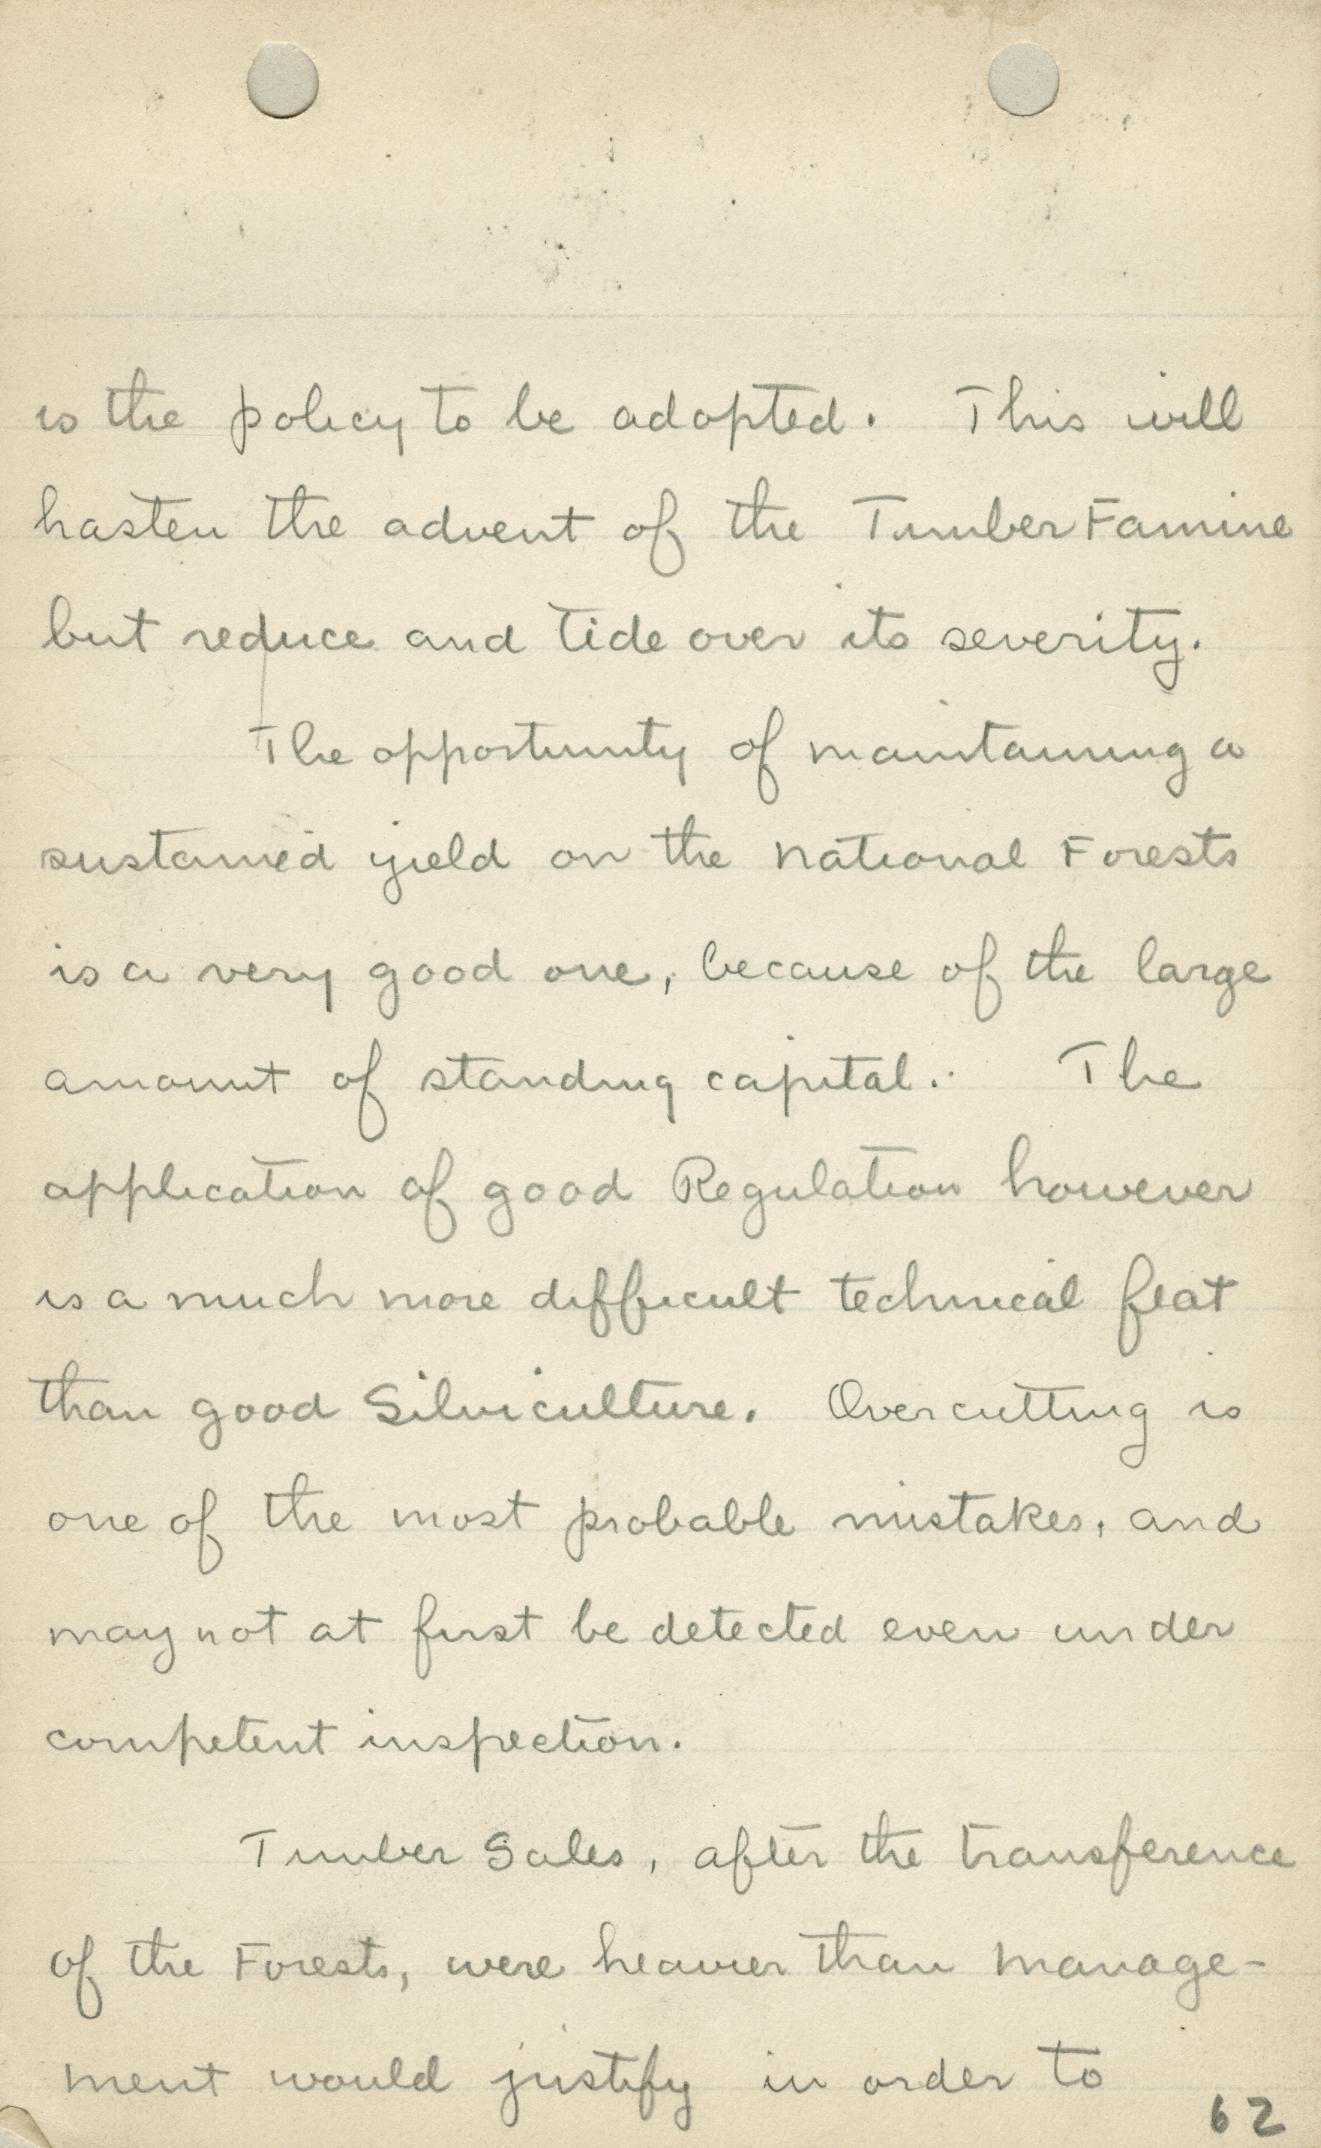 is the policy to be adopted. This will
hasten the advent of the Timber Famine
but reduce and tide over its severity.
The opportunity of maintaining a
sustained yield on the National Forests
is a very good one, because of the large
amount of standing capital. The
application of good Regulation however
is a much more difficult technical feat
than good Silviculture. Overcutting is
one of the most probable mistakes, and
may not at first be detected even under
competent inspection.
Timber Sales, after the transference
of the Forests, were heavier than manage-
ment would justify in order to
62